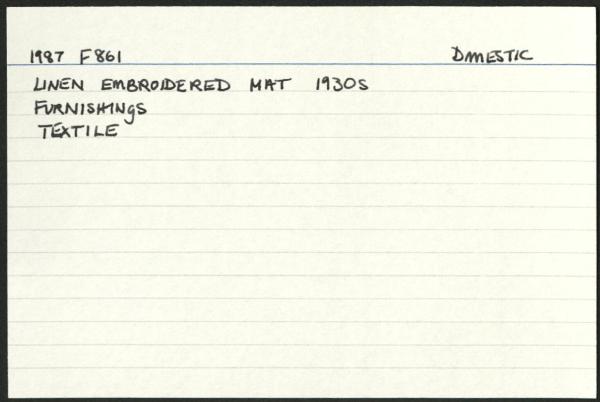 1987 F861 DOMESTIC
LINEN EMBROIDERED MAT 1930S
FURNISHINGS
TEXTILE